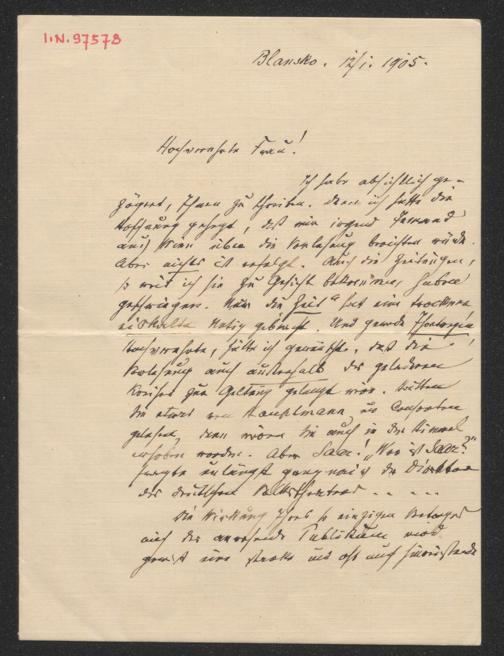 I.N. 97573
Blansko. 12/I. 1905.
Hochverehrte Frau!
Ich habe absichtlich ge-
zögert, Ihnen zu schreiben. Denn ich hatte die
Hoffnung gehegt, daß mir irgend Jemand
aus Wien über die Vorlesung berichten würde.
Aber nichts ist erfolgt. Auch die Zeitungen,
so weit ich sie zu Gesicht bekomme, haben
geschwiegen. Nur die „Zeit“ hat eine trockene
eiskalte Notiz gebracht. Und gerade
Hochverehrte, hätte ich gewünscht, daß die
Vorlesung auch außerhalb des geladenen
Kreises zur Geltung gelangt wäre. Hätten
Sie etwas von Hauptmann
gelesen, dann wären Sie auch in den Himmel
erhoben worden. Aber Saar! „Wer ist Saar?“
fragte unlängst der Direktor
des deutschen Volkstheaters . . . . .
Die Wirkung Ihres so einzigen Vortrages
auf das anwesende Publikum wird
gewiß eine starke und